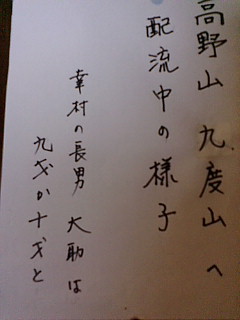 高野山 九度山 へ
配流中の様子
幸村の長男 大助は
九才か十才と